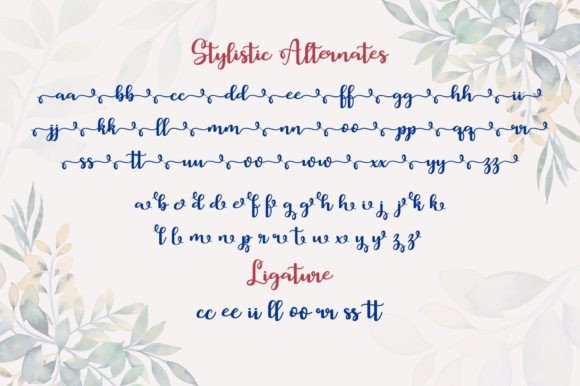 Stylistic Alternates
aa bb cc dd ee ff gg hh ii
jj kk ll mm nn oo pp qq rr
ss tt uu vv ww xx yy zz
a b c d d e f f g g h h i j j k k
l l m n p r r t u x y y z z
Ligature
cc ee ii ll oo rr ss tt